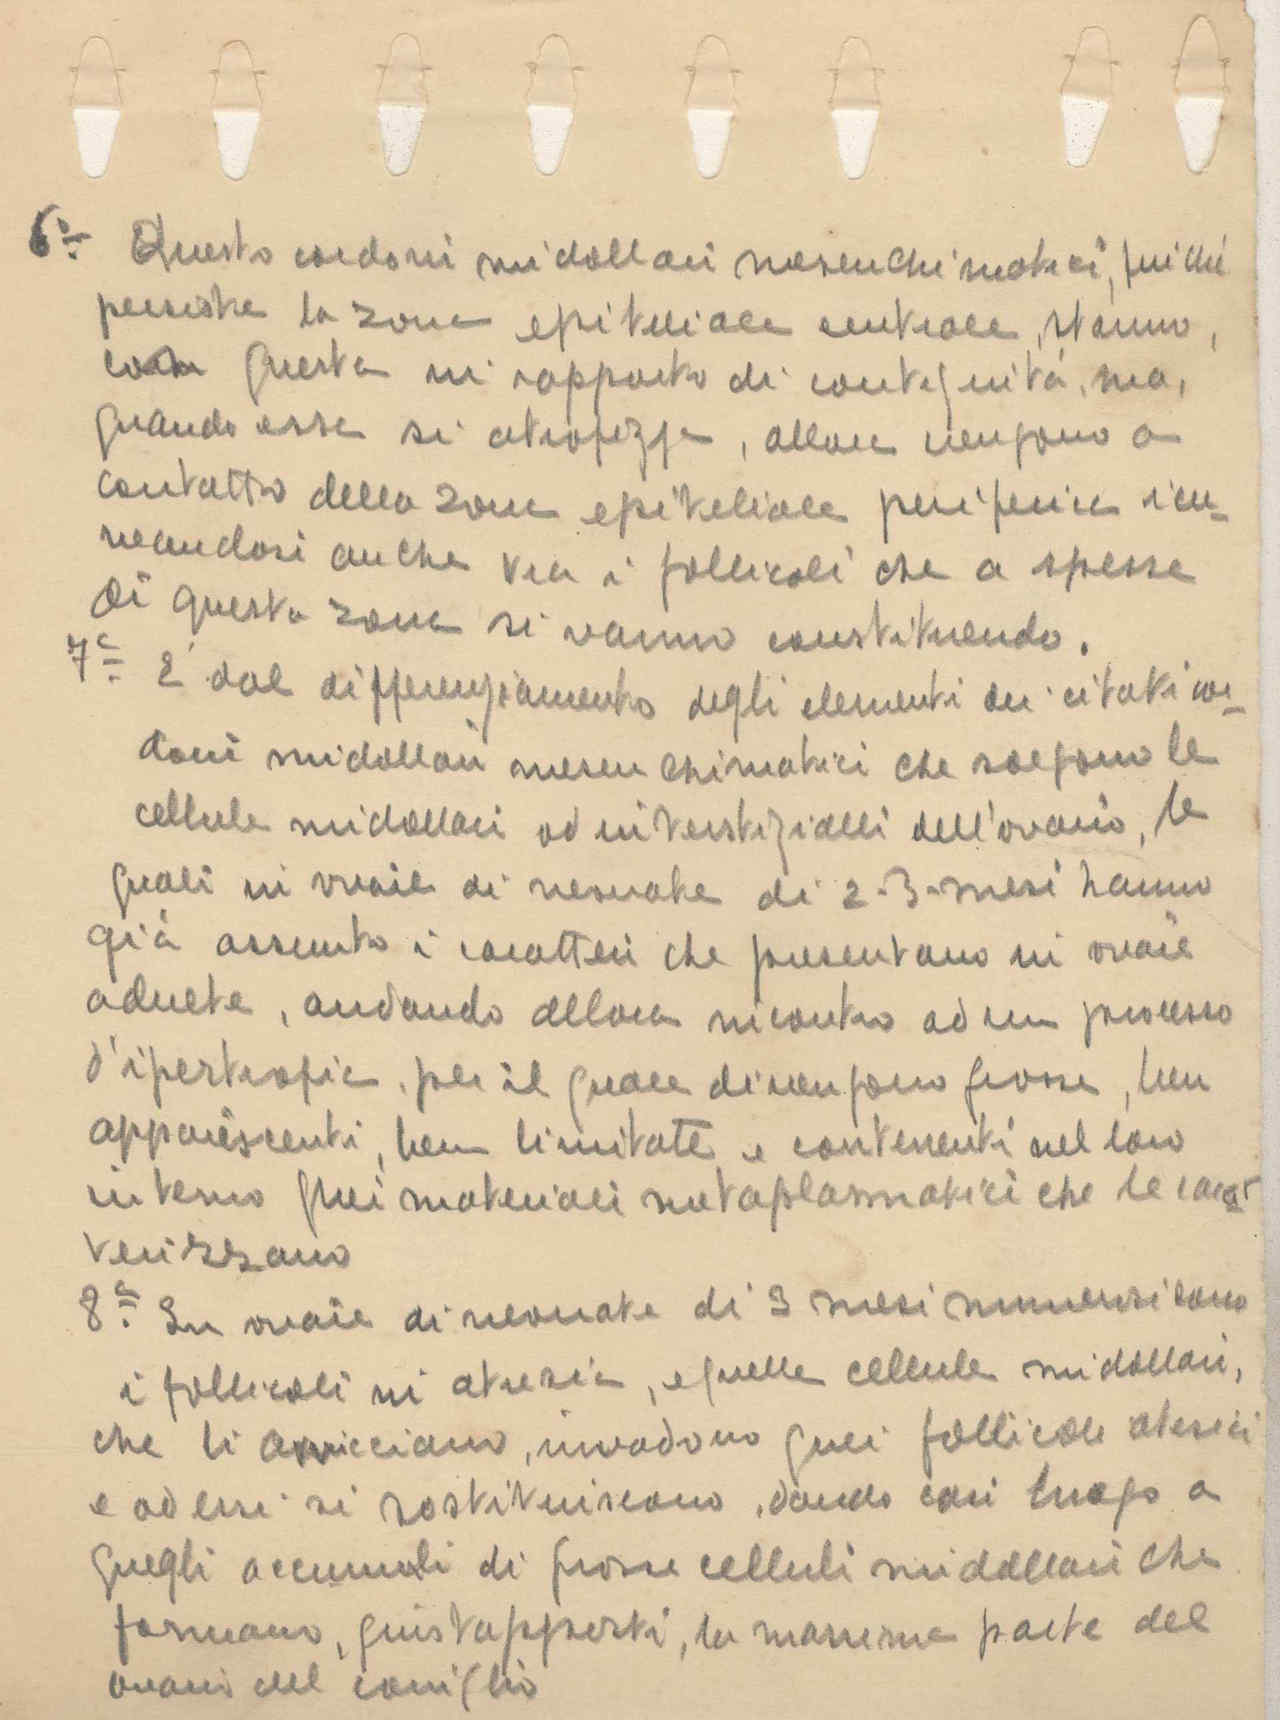 6ª Questo cordoni midollari mesenchimatici, finché
persiste la zona epiteliale centrale, stanno,
con questa in rapporto di contiguitá, ma,
quando essa si atrofizza, allora vengono a
contatto della zona epiteliale periferica incu-
neandosi anche tra i follicoli che a spesse
di questa zona si vanno constituendo.
7ª E' dal differenziamento degli elementi dei citati cor-
doni midollari mesenchimatici che sorgono le
cellule midollari od interstizialli dell'ovario, le
quali in ovaie di neonate di 2-3-mesi hanno
già assunto i caratteri che presentano in ovaie
adulte, andando allora incontro ad un processo
d'ipertrofia, per il quale divengono grosse, ben
appariscenti, ben limitate e contenenti nel loro
interno quei materiali metaplasmatici che le carat
terizzano
8ª In ovaie di neonate di 3 mesi numerosi sono
i follicoli in atresia, e quelle cellule midollari,
che li, invadono quei follicoli atresici
e ad essi si sostituiscono, dando cosi luogo a
quegli accumoli di grosse celluli midollari che
formano, giustapposti, la massima parte del
ovario del coniglio